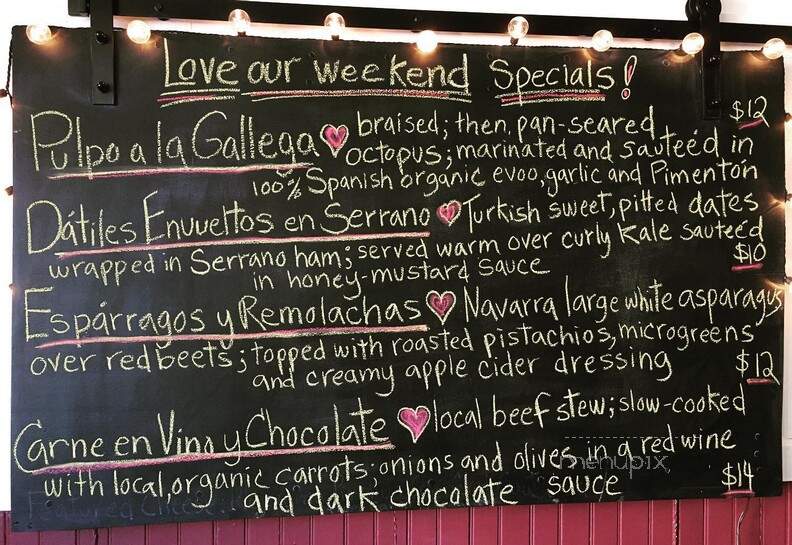 Love our weekend Specials!
$12
Pulpo a la Gallega braised; then, pan-seared
octopus; marinated and sauteéd in
100% Spanish organic evoo, garlic and Pimentón
Dátiles Envueltos en Serrano Turkish sweet, pitted dates
wrapped in Serrano ham; served warm over curly Kale sauteéd
in honey-mustard sauce
$10
Espárragos y Remolachas Navarra large white asparagus
over red beets; topped with roasted pistachios, microgreens
and creamy apple cider dressing
$12
Carne en Vino y Chocolate local beef stew; slow-cooked
with local, organic carrots; onions and olives in a red wine
and dark chocolate sauce
$14
menupix